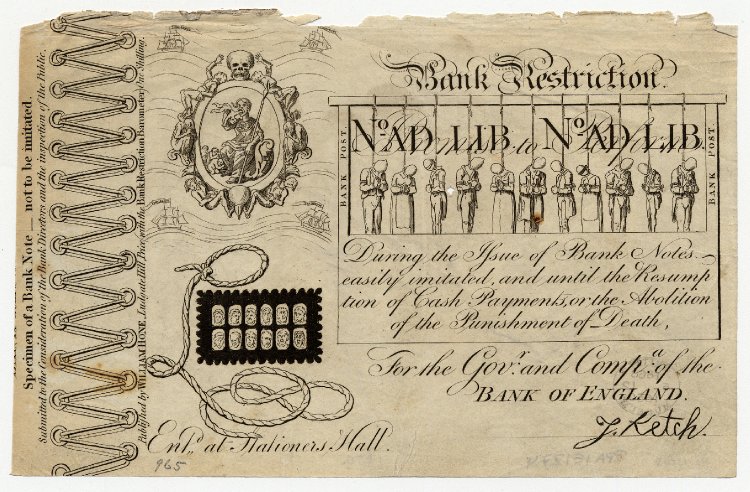 Specimen of a Bank Note — not to be imitated.
Submitted to the Consideration of the Bank Directors and the inspection of the Public.
Published by WILLIAM HONE, Ludgate Hill, Price with the Bank Restriction Barometer, One Shilling.
Bank Restriction.
BANK POST
No. AD. LIB. No. AD. LIB.
I Promise to Perform
BANK POST
During the Issue of Bank Notes
easily imitated, and until the Resump
tion of Cash Payments, or the Abolition
of the Punishment of Death,
For the Govr. and Compa. of the
BANK OF ENGLAND.
J. Ketch.
Entd. at Stationers Hall.
965